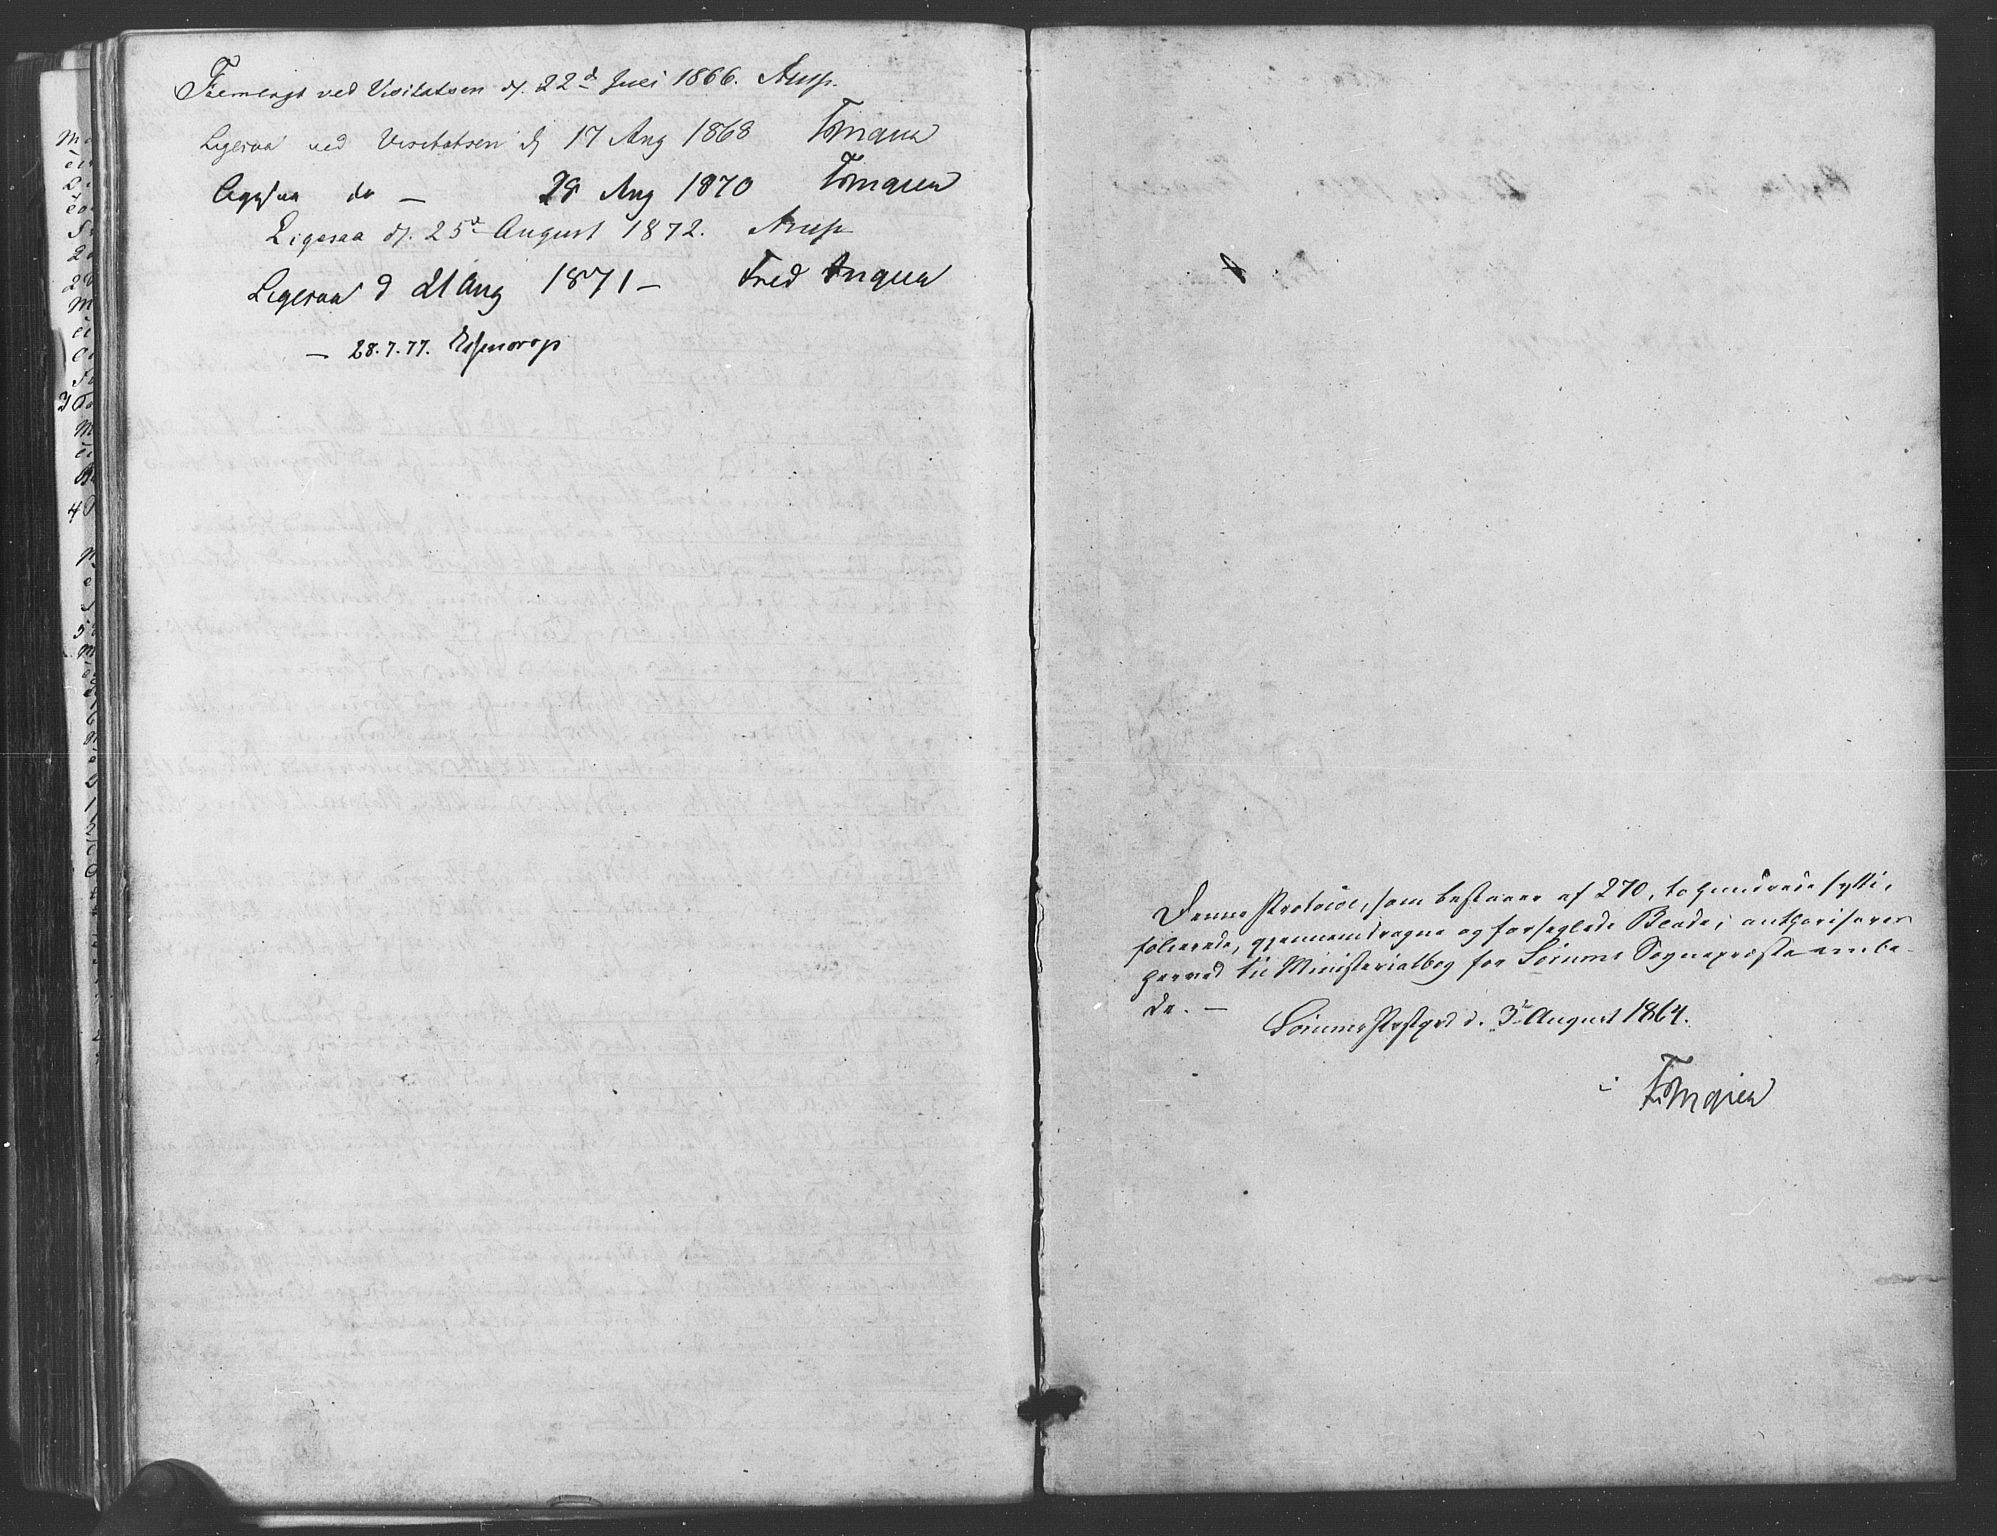 Fremlagt ved Visitatsen d. 22d Juli 1866. Arup.
Ligesaa ved Visitatsen d 17 Aug 1868
Ligesaa do — 28 Aug 1870
Ligesaa d. 25d August 1872. Arup
Ligesaa d 21 Aug 1871 — Fred
— 28.7.77. Essendrop
Denne Protocol, som bestaaer af 270, to hundrede sytti,
folierede, gjennemdragne og forseglede Blade, authoriseres
herved til Ministerialbog for Sørums Sognepræste-embe-
de. —
Sørums Præstgrd d. 3die August 1864.